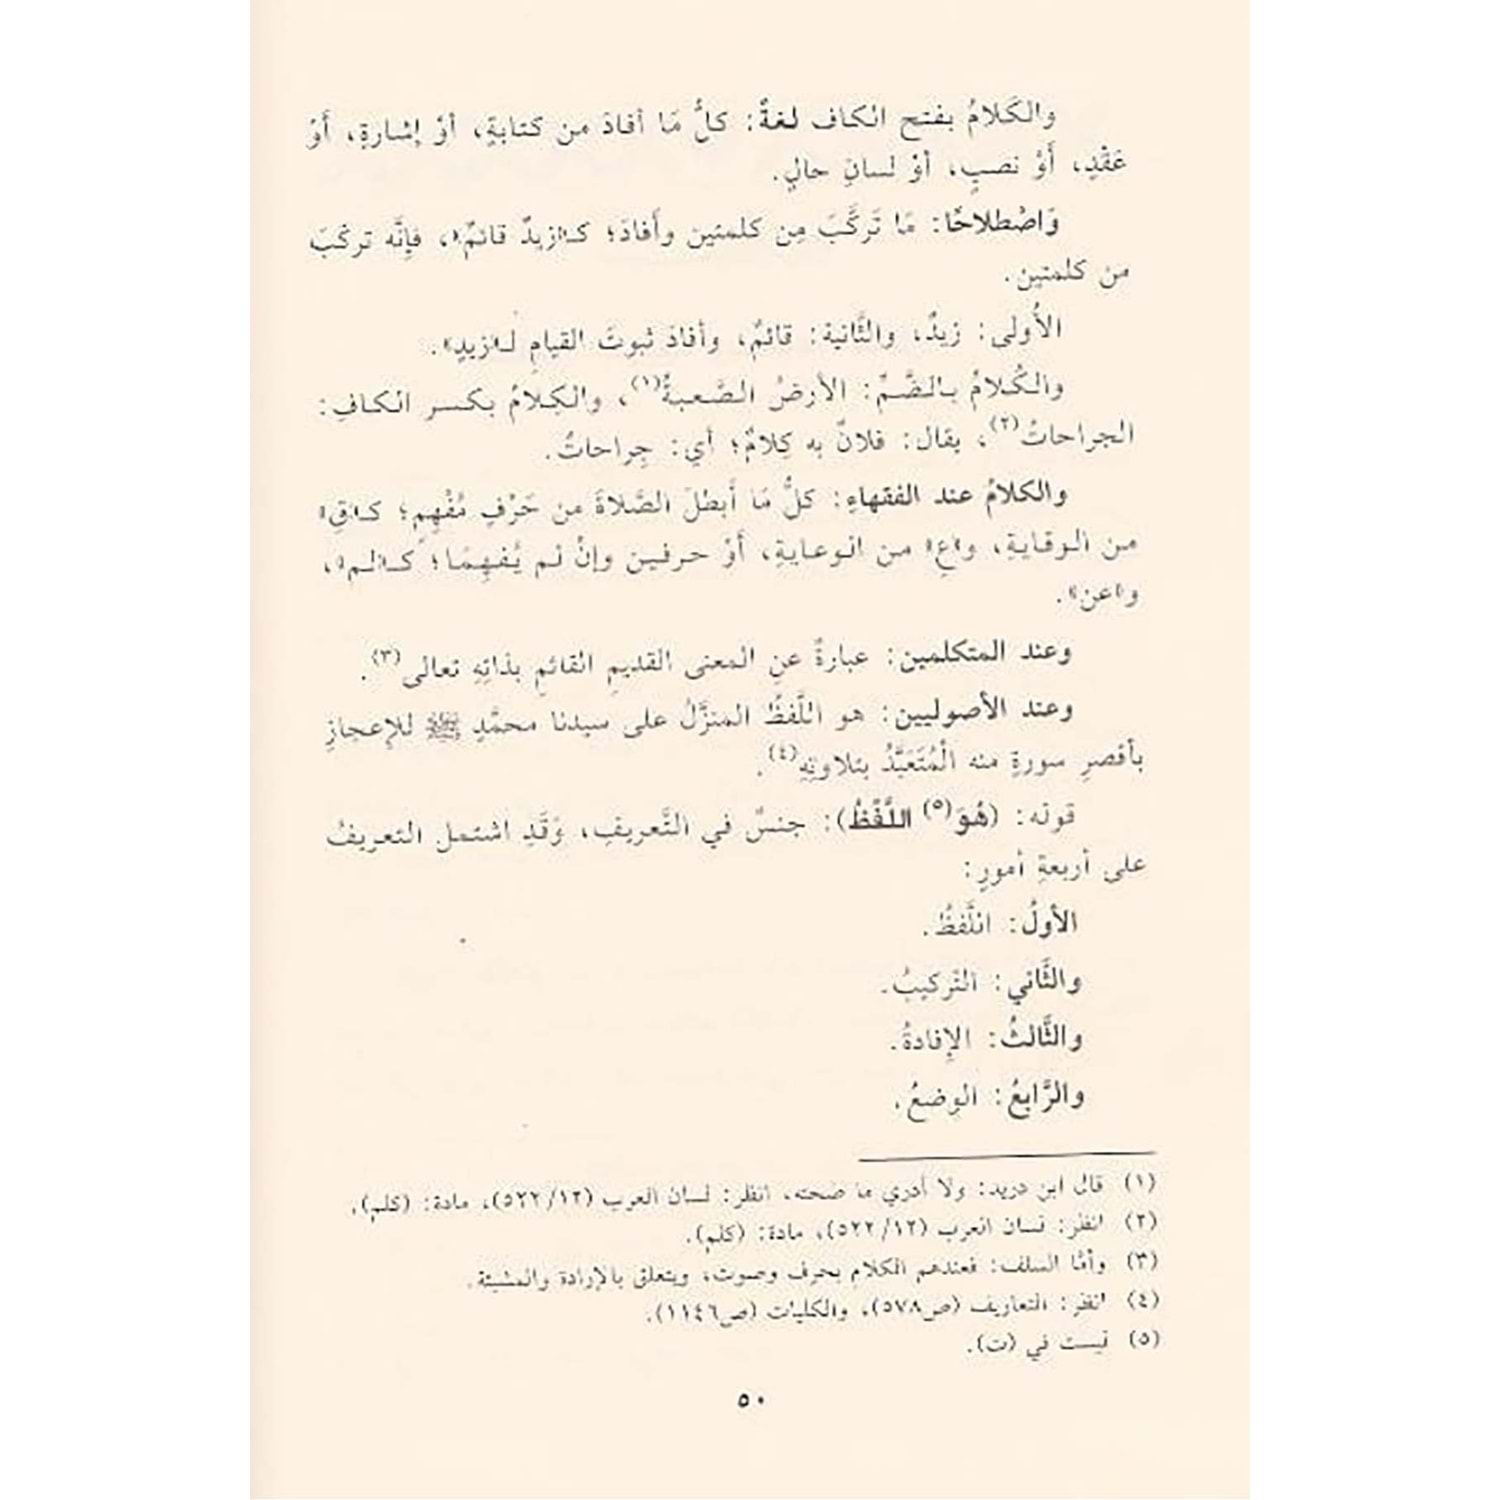 والكَلامُ بفتح الكاف لغةً: كلُّ مَا أفادَ من كتابةٍ، أوْ إشارةٍ، أَوْ
عَقْدٍ، أَوْ نصبٍ، أوْ لسانِ حالٍ.
وَاصْطلاحًا: مَا تَركَّبَ مِن كلمتين وأَفادَ؛ كـ«زيدٌ قائمٌ»، فإنَّه تركبَ
من كلمتين.
الأُولى: زيدٌ، والثَّانية: قائمٌ، وأفادَ ثبوتَ القيامِ لـ«زيدٍ».
والكُلامُ بـالـضَّـمِّ: الأرضُ الـصَّـعبـةُ(١)، والـكِـلامُ بـكـسـر الـكـافِ:
الجراحاتُ(٢)، يقال: فلانٌ به كِلامٌ؛ أي: جِراحاتٌ.
والكلامُ عند الفقهاءِ: كلُّ مَا أَبطلَ الصَّلاةَ من حَرْفٍ مُفْهِمٍ؛ كـ«قِ»
من الوقايةِ، و«عِ» من الوعايةِ، أَوْ حرفين وإنْ لم يُفهِمَا؛ كـ«لم»،
و«عن».
وعند المتكلمين: عبارةٌ عنِ المعنى القديمِ القائمِ بذاتِهِ تعالى(٣).
وعند الأصوليين: هو اللَّفظُ المنزَّلُ على سيدنا محمَّدٍ ﷺ للإعجازِ
بأقصرِ سورةٍ منه الْمُتَعَبَّدُ بتلاوتِهِ(٤).
قوله: (هُوَ(٥) اللَّفْظُ): جنسٌ في التَّعريفِ، وَقَدِ اشتمل التعريفُ
على أربعةِ أمورٍ:
الأولُ: اللَّفظُ.
والثَّاني: التركيبُ.
والثَّالثُ: الإفادةُ.
والرَّابعُ: الوضعُ.
(١) قال ابن دريد: ولا أدري ما صحته، انظر: لسان العرب (١٢/ ٥٢٢)، مادة: (كلم).
(٢) انظر: لسان العرب (١٢/ ٥٢٢)، مادة: (كلم).
(٣) وأمَّا السلف: فعندهم الكلام بحرف وصوت، ويتعلق بالإرادة والمشيئة.
(٤) انظر: التعاريف (ص٥٧٨)، والكليات (ص١١٤٦).
(٥) ليست في (ت).
٥٠